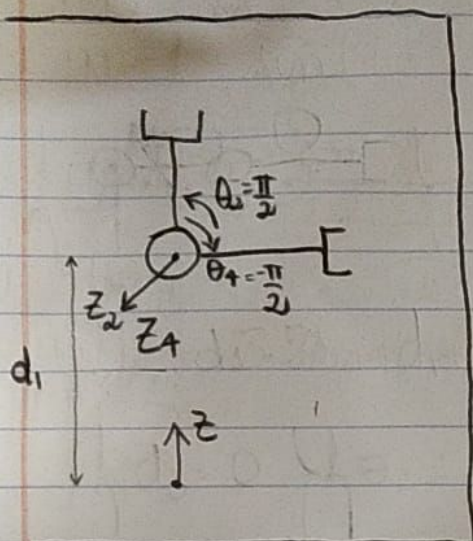 θ₂=π/2
θ₄=-π/2
Z₂
Z₄
d₁
Z